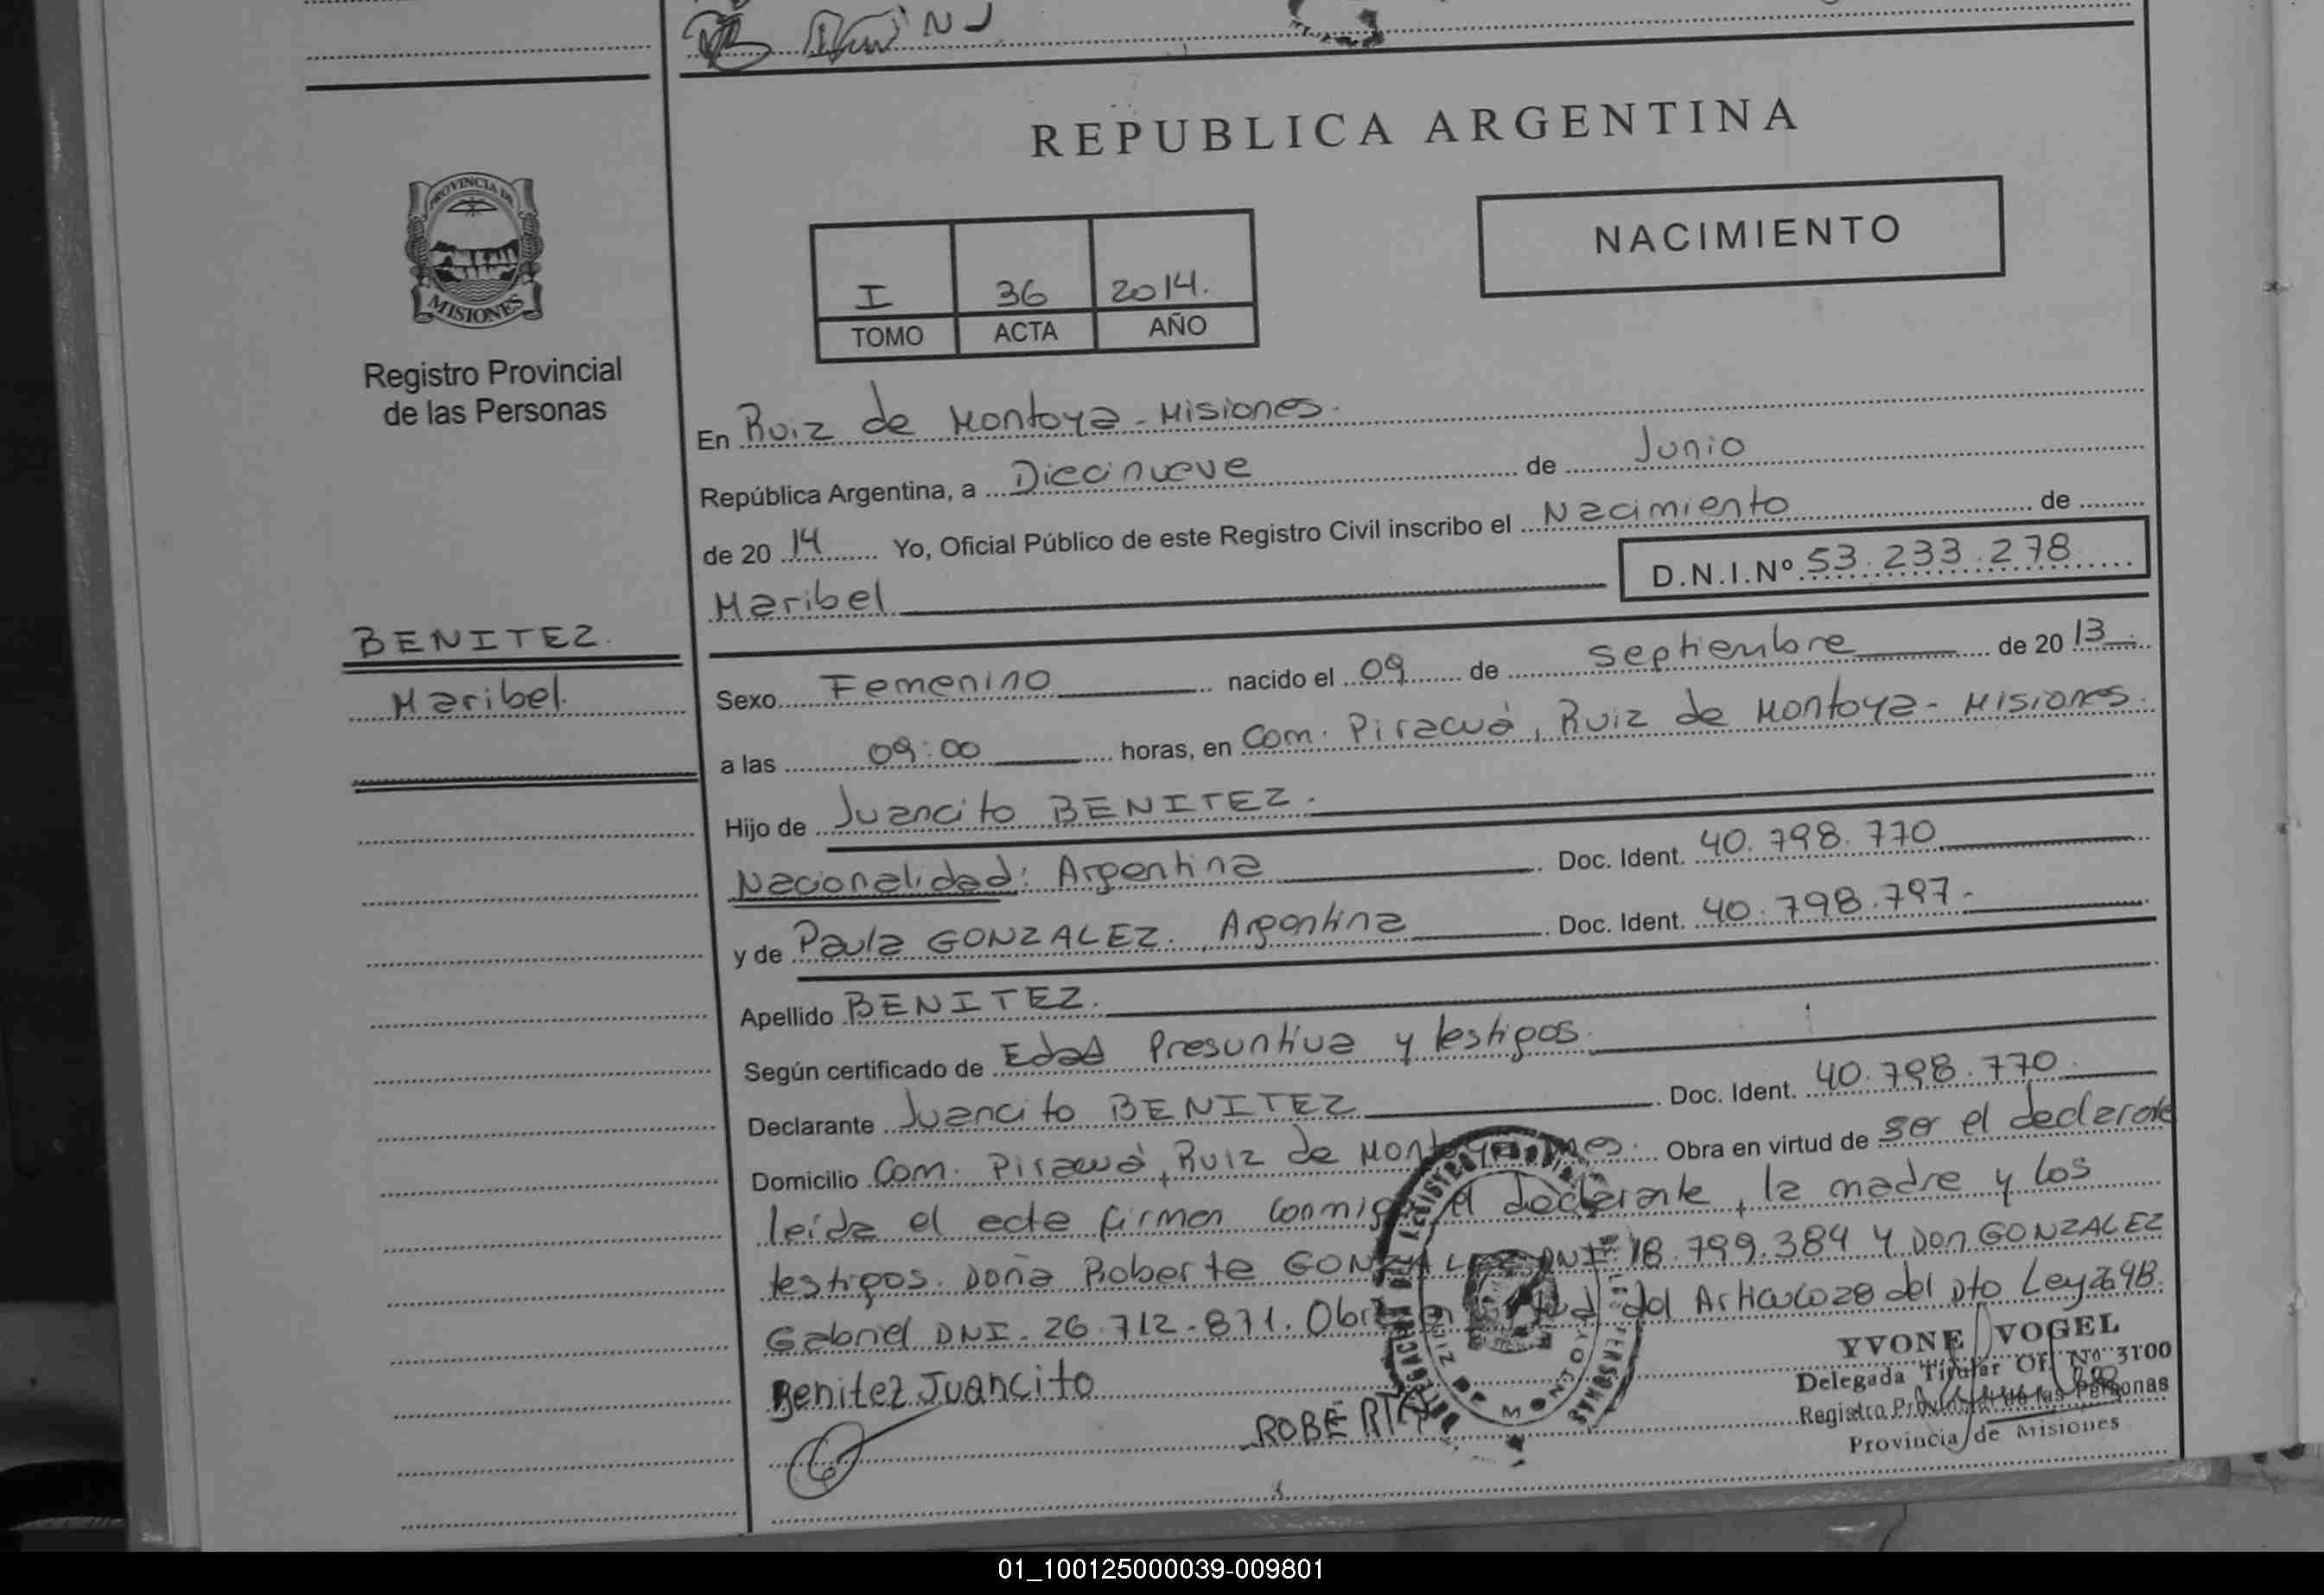 REPUBLICA ARGENTINA
NACIMIENTO
PROVINCIA DE
MISIONES
Registro Provincial
de las Personas
I 36 2014.
TOMO ACTA AÑO
En Ruiz de Montoya - Misiones.
República Argentina, a Diecinueve de Junio
de 20 14 Yo, Oficial Público de este Registro Civil inscribo el Nacimiento de
Maribel
D.N.I.Nº 53.233.278
BENITEZ.
Maribel.
Sexo Femenino nacido el 09 de septiembre de 20 13
a las 09:00 horas, en Com. Piracuá, Ruiz de Montoya - Misiones.
Hijo de Juancito BENITEZ.
Nacionalidad: Argentina Doc. Ident. 40.798.770
y de Paula GONZALEZ., Argentina Doc. Ident. 40.798.797.-
Apellido BENITEZ.
Según certificado de Edad Presuntiva y testigos.
Declarante Juancito BENITEZ Doc. Ident. 40.798.770.
Domicilio Com. Piracuá, Ruiz de Montoya Mnes. Obra en virtud de ser el declarante
leída el acta firman conmigo el declarante, la madre y los
testigos. Doña Roberta GONZALEZ DNI Nº 18.799.384 y Don GONZALEZ
Gabriel DNI. 26.712.871. Obra en virtud del Articulo 28 del Dto Ley
Benitez Juancito
ROBERTA
YVONE VOGEL
Delegada Titular Of. Nº 3100
Registro Provincial de las Personas
Provincia de Misiones
01_100125000039-009801